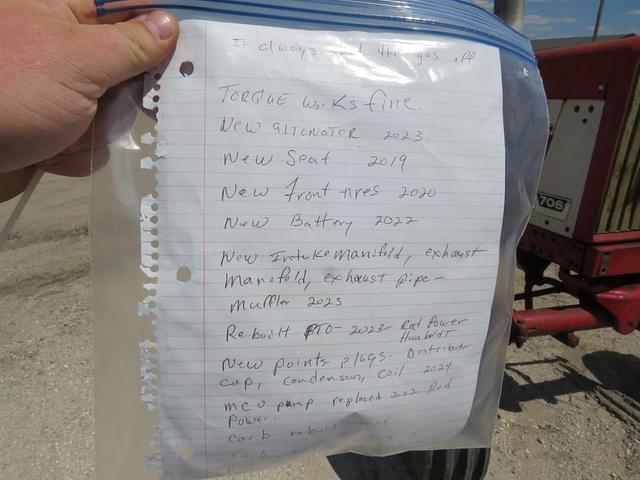 I always the gas off
TORQUE works fine.
New altenator 2023
New Seat 2019
New front tires 2020
New Battery 2022
New Intake manifold, exhaust
manofold, exhaust pipe-
muffler 2023
Rebuilt PTO- 2023- Red Power
Humboldt
New points plugs- Distributer
cap, condenson, coil 2024
mcv pump replaced 2022 Red
Power.
carb
706